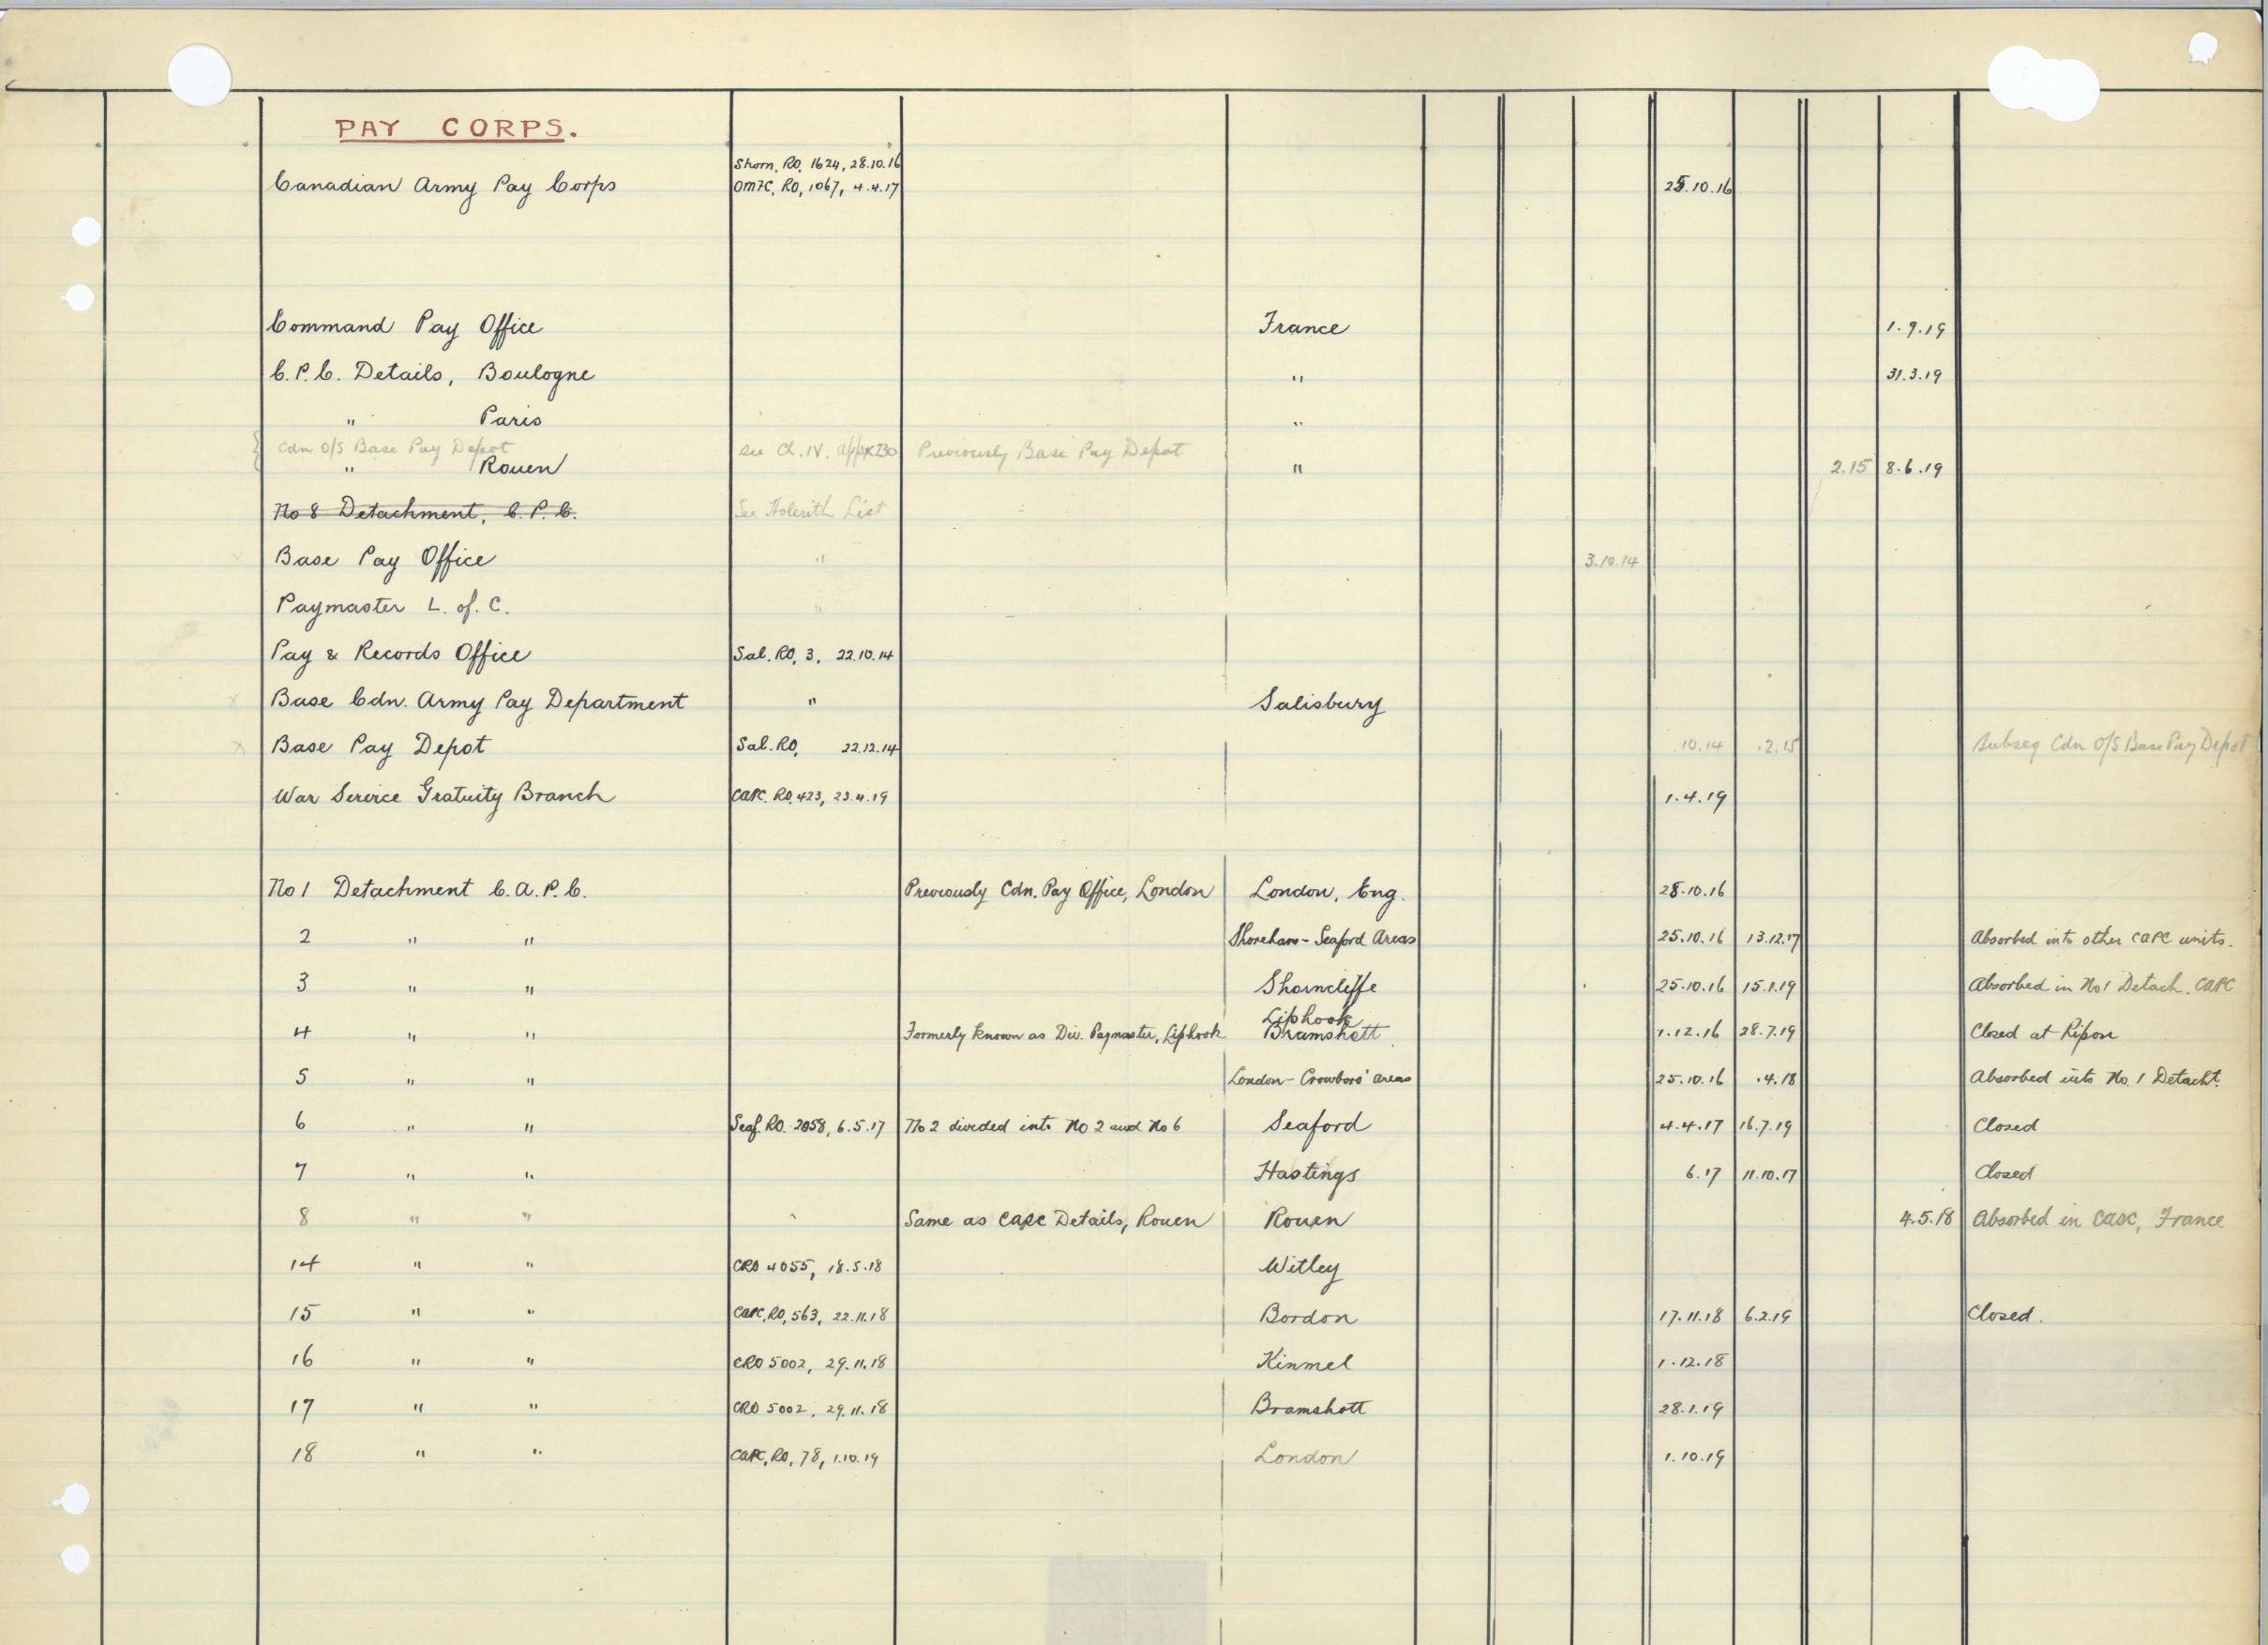 PAY CORPS.
Shorn. RO. 1624, 28.10.16
Canadian Army Pay Corps OMFC. RO, 1067, 4.4.17 25.10.16
Command Pay Office France 1.9.19
C.P.C. Details, Boulogne " 31.3.19
" Paris "
Cdn O/S Base Pay Depot see Ch. IV. appx 230 Previously Base Pay Depot
" Rouen " 2.15 8.6.19
No 8 Detachment, C.P.C. See Holerith List
Base Pay Office " 3.10.14
Paymaster L. of. C. "
Pay & Records Office Sal. RO, 3, 22.10.14
Base Cdn. Army Pay Department " Salisbury
Base Pay Depot Sal. RO, 22.12.14 .10.14 .2.15 Subseq Cdn O/S Base Pay Depot
War Service Gratuity Branch CAPC. RO. 423, 23.4.19 1.4.19
No 1 Detachment C.A.P.C. Previously Cdn. Pay Office, London London, Eng. 28.10.16
2 " " Shoreham - Seaford Areas 25.10.16 13.12.17 Absorbed into other CAPC units.
3 " " Shorncliffe 25.10.16 15.1.19 Absorbed in No 1 Detach. CAPC
Liphook
4 " " Formerly known as Div. Paymaster, Liphook Bramshott 1.12.16 28.7.19 Closed at Ripon
5 " " London - Crowboro' areas 25.10.16 .4.18 Absorbed into No. 1 Detacht.
6 " " Seaf. RO. 2058, 6.5.17 No 2 divided into No 2 and No 6 Seaford 4.4.17 16.7.19 Closed
7 " " Hastings 6.17 11.10.17 Closed
8 " " Same as CAPC Details, Rouen Rouen 4.5.18 Absorbed in CASC, France
14 " " CRO 4055, 18.5.18 Witley
15 " " CAPC, RO, 563, 22.11.18 Bordon 17.11.18 6.2.19 Closed.
16 " " CRO 5002, 29.11.18 Kinmel 1.12.18
17 " " CRO 5002, 29.11.18 Bramshott 28.1.19
18 " " CAPC, RO, 78, 1.10.19 London 1.10.19